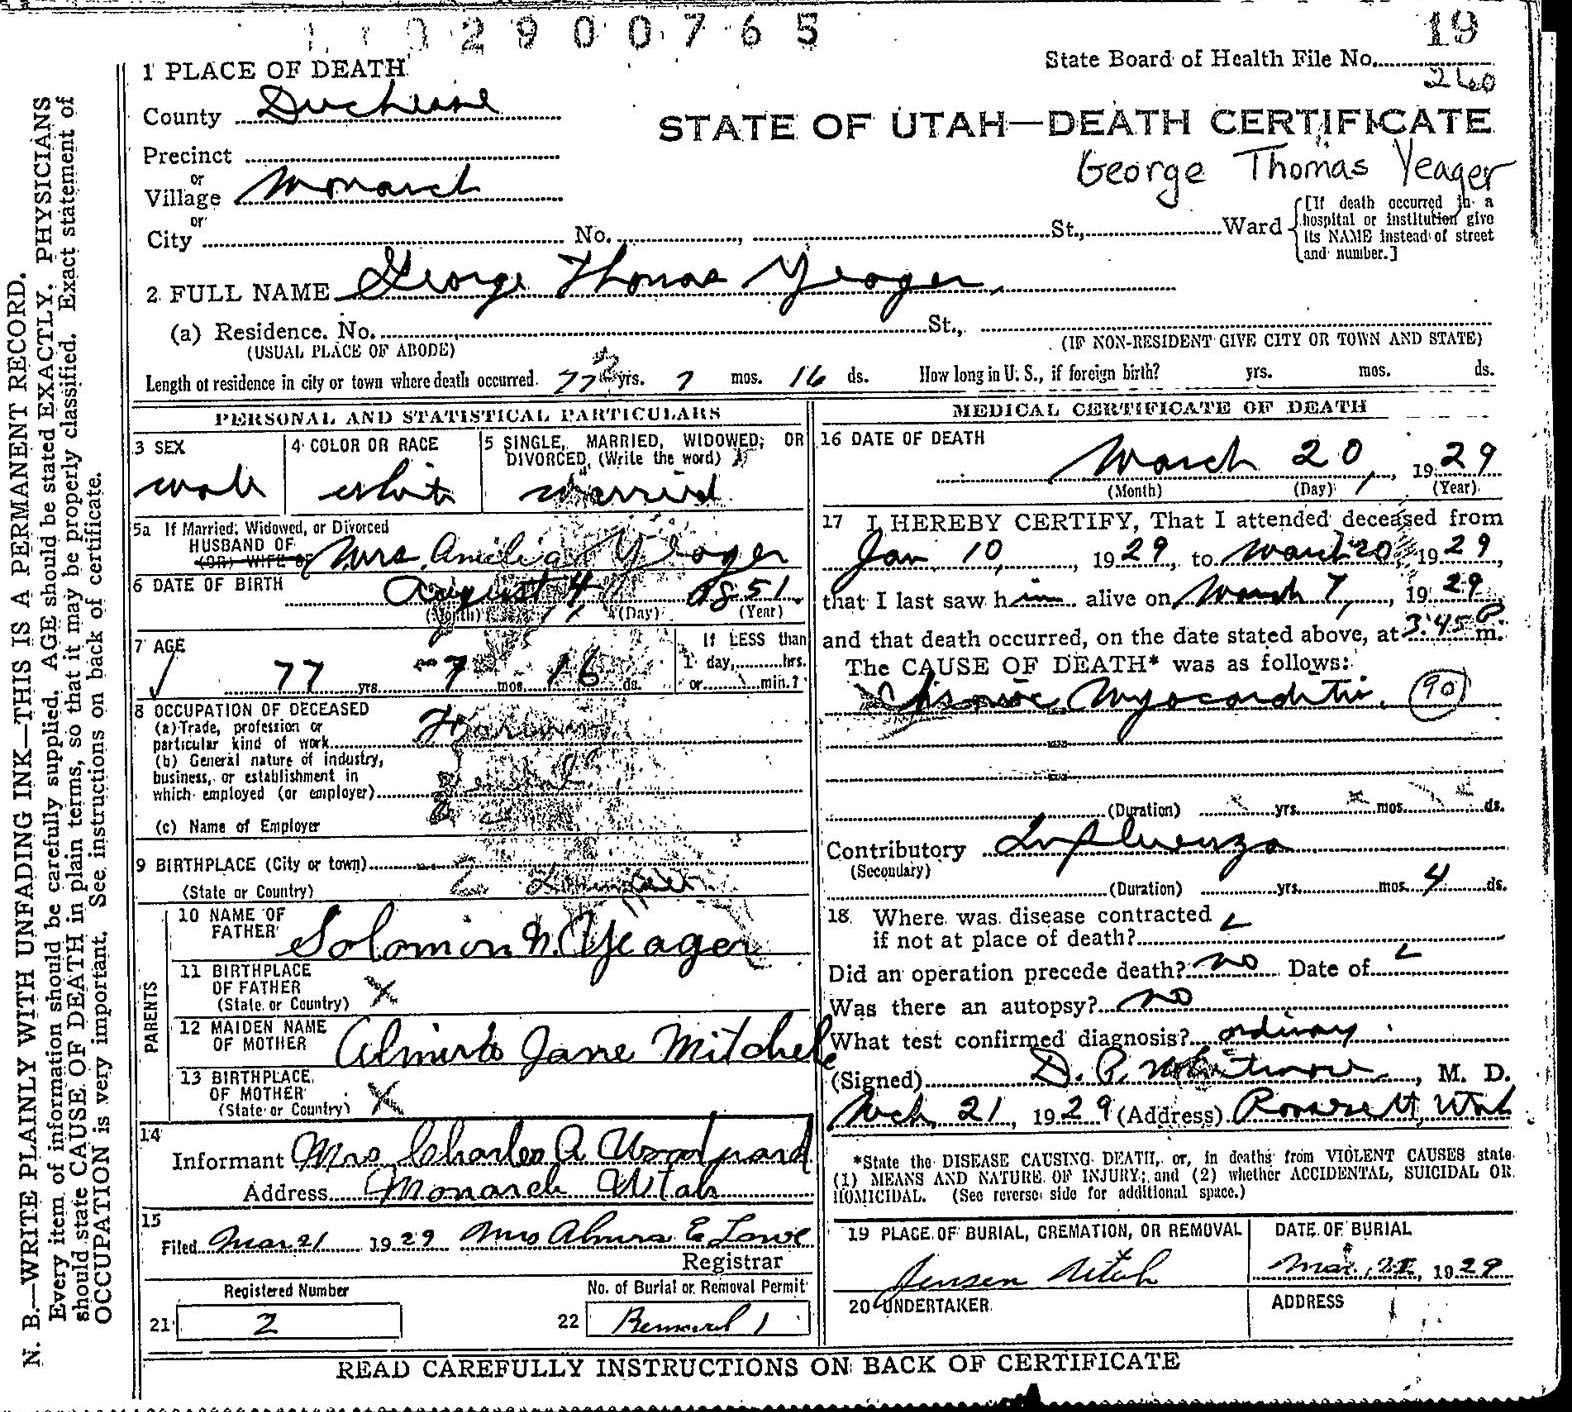 1 1 0 2 9 0 0 7 6 5
19
State Board of Health File No.
260
1 PLACE OF DEATH
County Duchesne
STATE OF UTAH—DEATH CERTIFICATE
Precinct
George Thomas Yeager
or
Village Monarch
or
City No. , St., Ward
[If death occurred in a
hospital or institution give
its NAME instead of street
and number.]
2 FULL NAME George Thomas Yeager.
(a) Residence. No. St.,
(USUAL PLACE OF ABODE) (IF NON-RESIDENT GIVE CITY OR TOWN AND STATE)
Length of residence in city or town where death occurred. 77 yrs. 7 mos. 16 ds. How long in U. S., if foreign birth? yrs. mos. ds.
PERSONAL AND STATISTICAL PARTICULARS
3 SEX
male
4 COLOR OR RACE
white
5 SINGLE, MARRIED, WIDOWED, OR
DIVORCED, (Write the word)
married
5a If Married, Widowed, or Divorced
HUSBAND OF
(OR) WIFE OF Mrs. Amelia Yeager
6 DATE OF BIRTH August 4 1851.
(Month) (Day) (Year)
7 AGE
77 yrs. 7 mos. 16 ds.
If LESS than
1 day, hrs.
or min.?
8 OCCUPATION OF DECEASED
(a) Trade, profession or
particular kind of work Farmer
(b) General nature of industry,
business, or establishment in
which employed (or employer)
(c) Name of Employer
9 BIRTHPLACE (City or town)
(State or Country)
PARENTS
10 NAME OF
FATHER Solomon N. Yeager
11 BIRTHPLACE
OF FATHER
(State or Country) X
12 MAIDEN NAME
OF MOTHER Almira Jane Mitchel
13 BIRTHPLACE
OF MOTHER
(State or Country) X
14
Informant Mrs Charles A Woodward
Address Monarch Utah
15
Filed Mar 21 1929 Mrs Almira E Lowe
Registrar
Registered Number
21 2
No. of Burial or Removal Permit
22 Removal 1
MEDICAL CERTIFICATE OF DEATH
16 DATE OF DEATH
March 20, 1929
(Month) (Day) (Year)
17 I HEREBY CERTIFY, That I attended deceased from
Jan, 10, , 1929, to March 20, 1929,
that I last saw him alive on March 7, , 1929
and that death occurred, on the date stated above, at 3:45 P m.
The CAUSE OF DEATH* was as follows:
Chronic Myocarditis. (90)
(Duration) x yrs. x mos. x ds.
Contributory Influenza
(Secondary)
(Duration) yrs. mos. 4 ds.
18. Where was disease contracted
if not at place of death?
Did an operation precede death? no Date of
Was there an autopsy? no
What test confirmed diagnosis? ordinary.
(Signed) D. P. Whitmore, M. D.
Mch, 21, 1929 (Address) Roosevelt, Utah
*State the DISEASE CAUSING DEATH, or, in deaths from VIOLENT CAUSES state
(1) MEANS AND NATURE OF INJURY; and (2) whether ACCIDENTAL, SUICIDAL OR
HOMICIDAL. (See reverse side for additional space.)
19 PLACE OF BURIAL, CREMATION, OR REMOVAL
Jensen Utah
DATE OF BURIAL
Mar, 22, 1929
20 UNDERTAKER
ADDRESS
READ CAREFULLY INSTRUCTIONS ON BACK OF CERTIFICATE
N. B.—WRITE PLAINLY WITH UNFADING INK—THIS IS A PERMANENT RECORD.
Every item of information should be carefully supplied. AGE should be stated EXACTLY. PHYSICIANS
should state CAUSE OF DEATH in plain terms, so that it may be properly classified. Exact statement of
OCCUPATION is very important. See instructions on back of certificate.